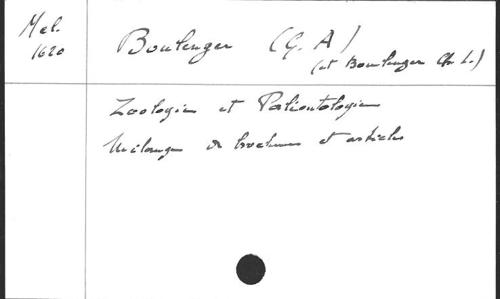 Mel.
1620
Boulenger (G. A)
(et Boulenger Ch. L.)
Zoologie et Paléontologie
Mélanges de brochures et articles